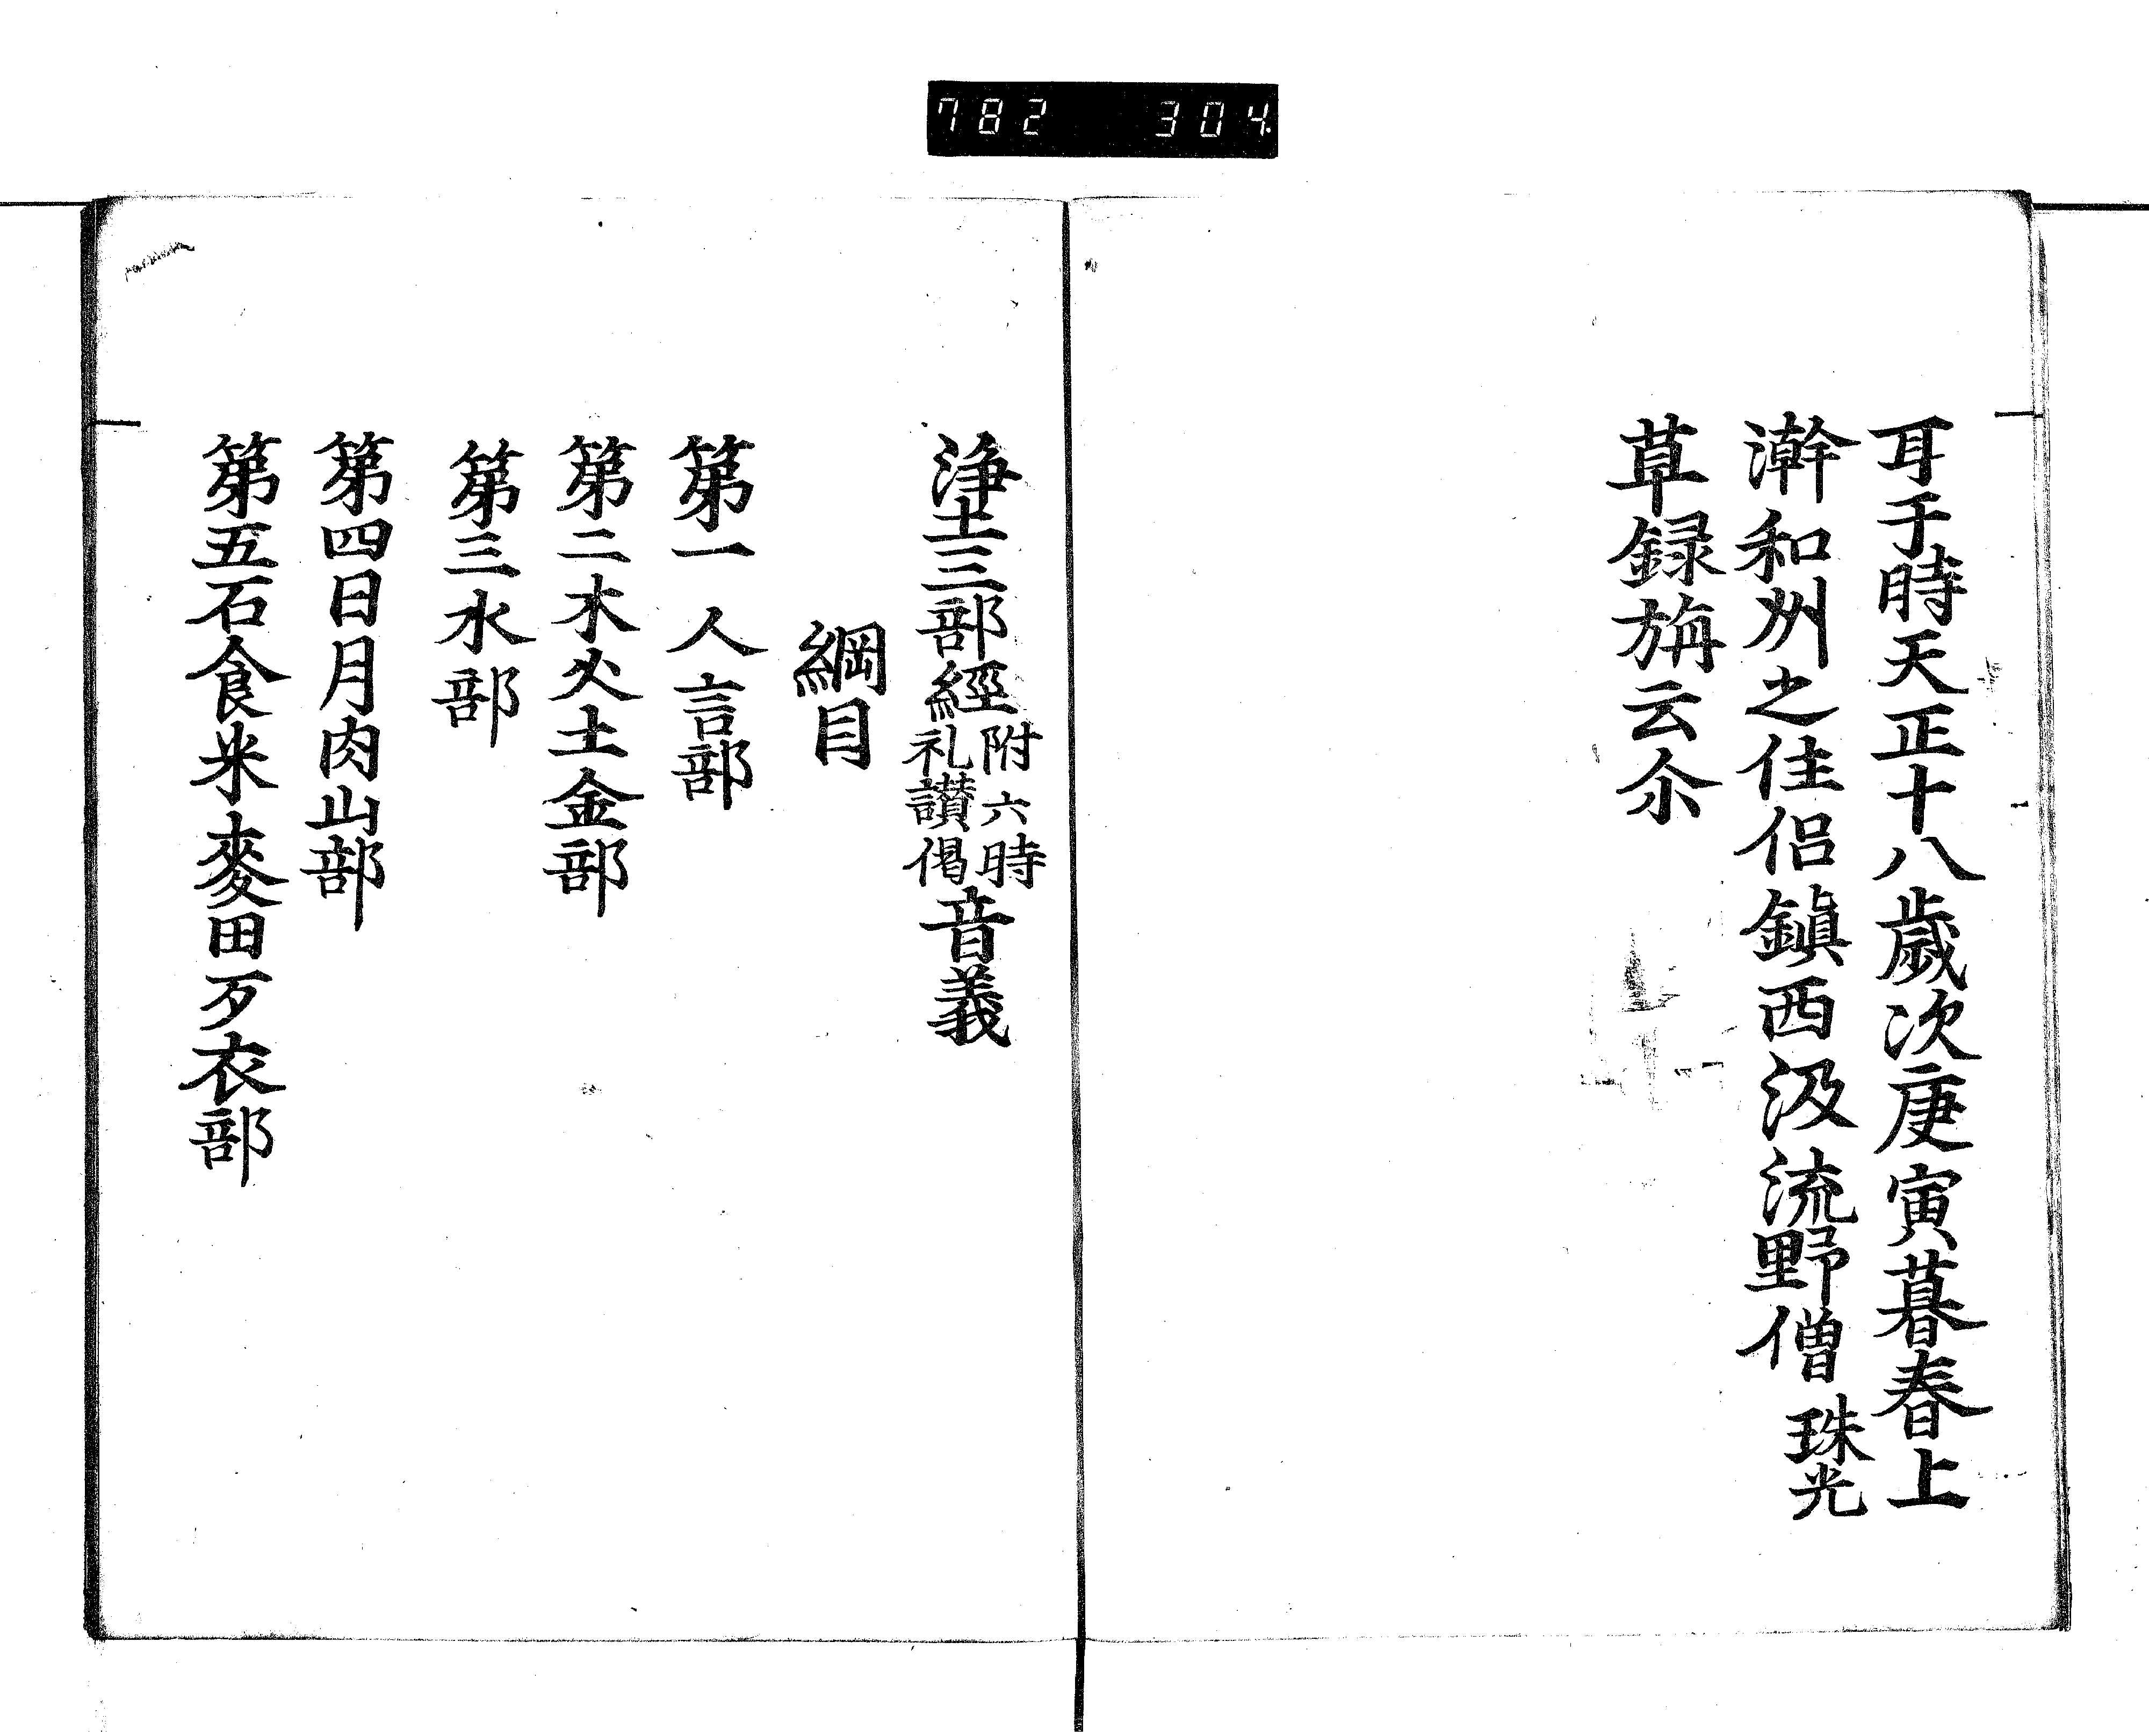 782 304
耳于時天正十八歲次庚寅暮春上
澣和州之住侶鎮西汲流野僧 珠光
草録旃云尒
浄土三部經附六時礼讃偈音義
綱目
第一 人言部
第二木火土金部
第三水部
第四日月肉山部
第五石食米麥田歹衣部